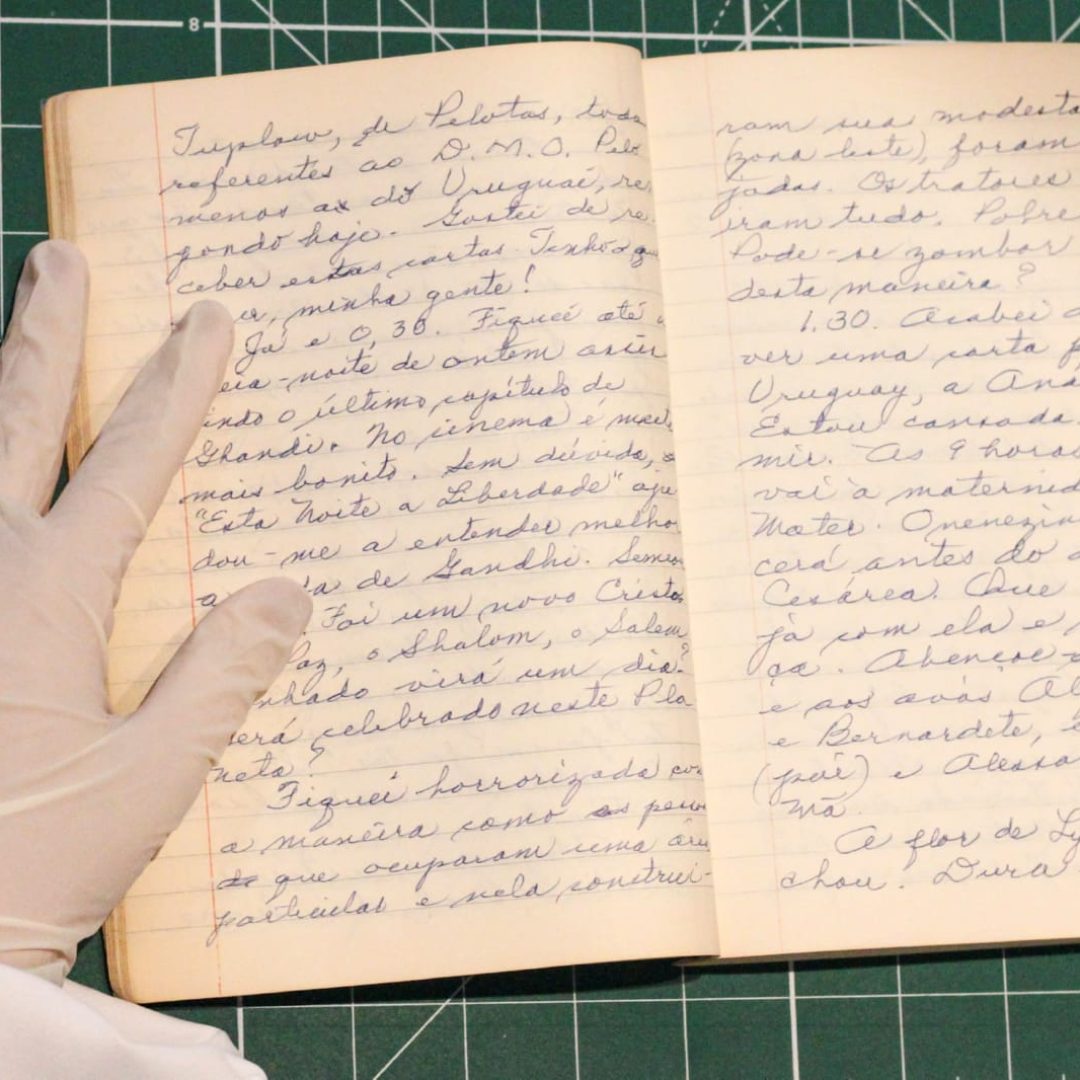 8
de Pelotas, todas
referentes ao D.M.O. Pelo
menos as do Uruguai, res
pondo hoje. Gostei de re
ceber estas cartas. Tenho q
minha gente!
Já e 0,30. Fiquei até
eia-noite de ontem assis
indo o último capítulo de
Ghandi. No cinema é
mais bonito. Sem dúvida, o
"Esta Noite a Liberdade" aju
dou-me a entender melho
a de Gandhi.
Foi um novo Cristo
Paz, o Shalom, o Salem
nhado virá um dia?
será celebrado neste Pla
neta?
Fiquei horrorizada com
a maneira como as pesso
de que ocuparam uma áre
particular e nela construi-
ram sua modesta
(zona leste), foram
jadas. Os tratores
iram tudo. Pobre
Pode-se zombar
desta maneira?
1.30. Acabei d
ver uma carta p
Uruguay, a Ana
Estou cansada.
mir. As 9 horas
vai à maternid
Mater. O nenezin
cerá antes do
Cesárea. Que
já com ela e
ça. Abençoe
e aos avós Al
e Bernardete, e
(pai) e Alessa
mã.
A flor de Ly
chou. Dura